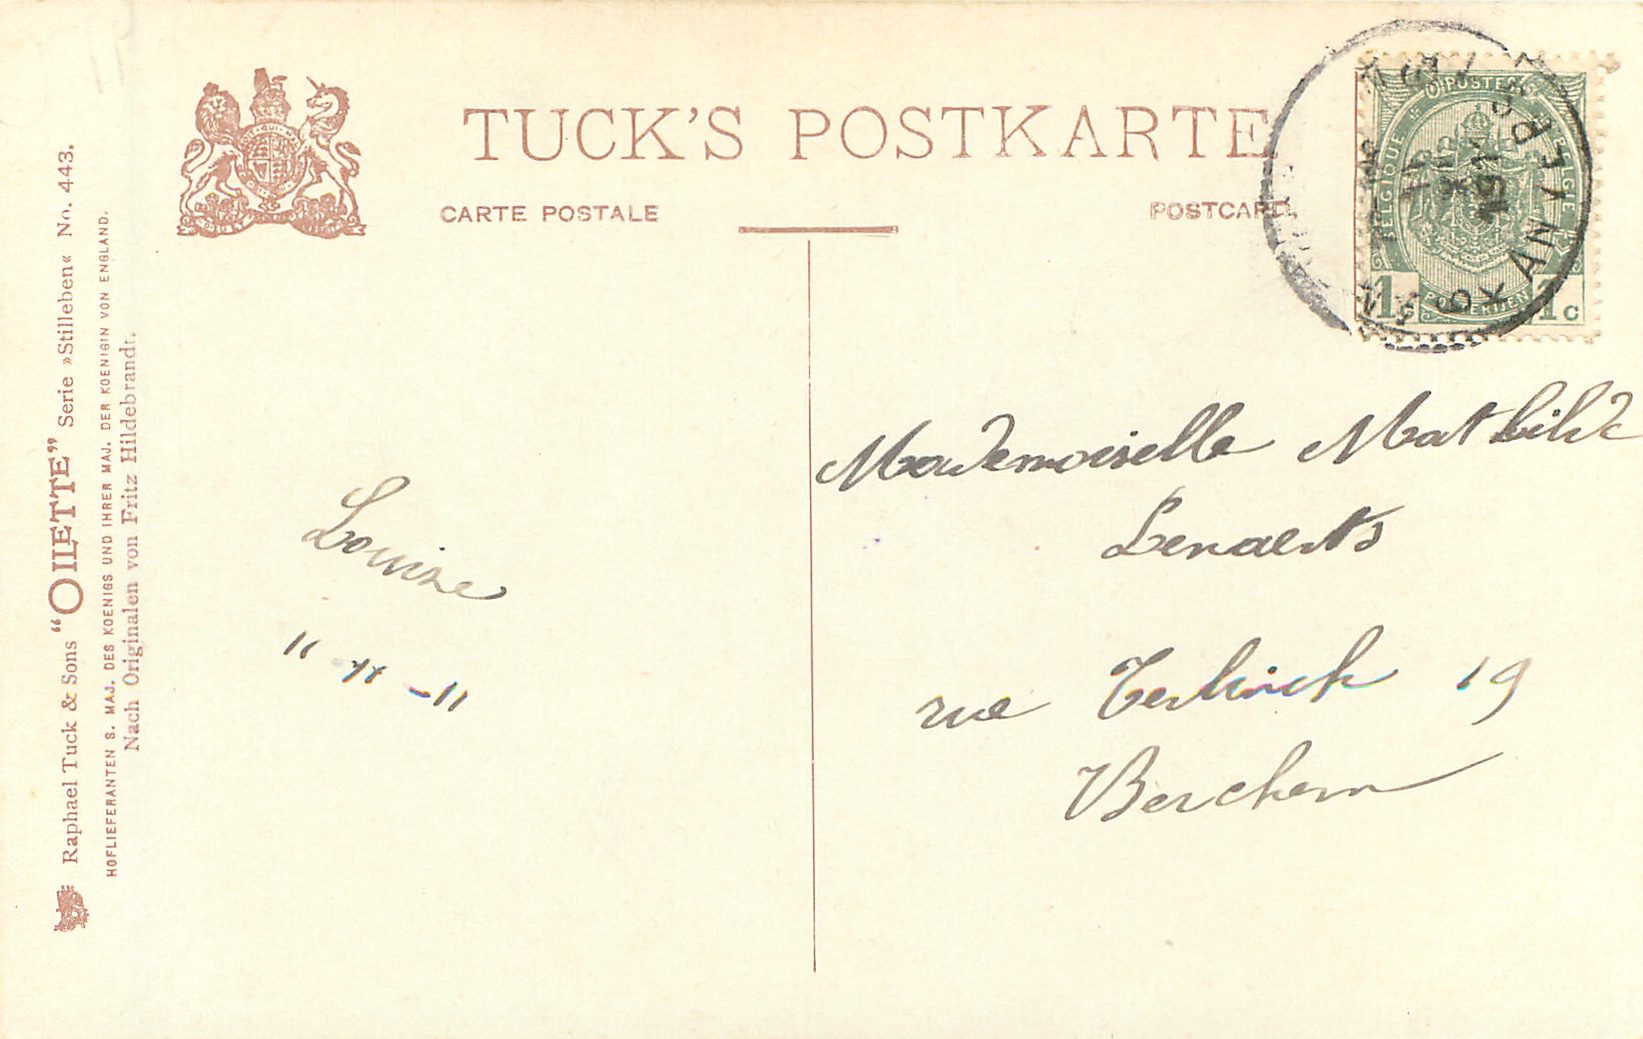 TUCK'S POSTKARTE
CARTE POSTALE
POSTCARD
Raphael Tuck & Sons “OILETTE” Serie »Stilleben« No. 443.
HOFLIEFERANTEN S. MAJ. DES KOENIGS UND IHRER MAJ. DER KOENIGIN VON ENGLAND.
Nach Originalen von Fritz Hildebrandt.
POSTES
BELGIQUE
BELGIE
POSTERIJEN
1 1c
1911
Louise
Mademoiselle Mathilde
Lenaerts
rue 19
Berchem